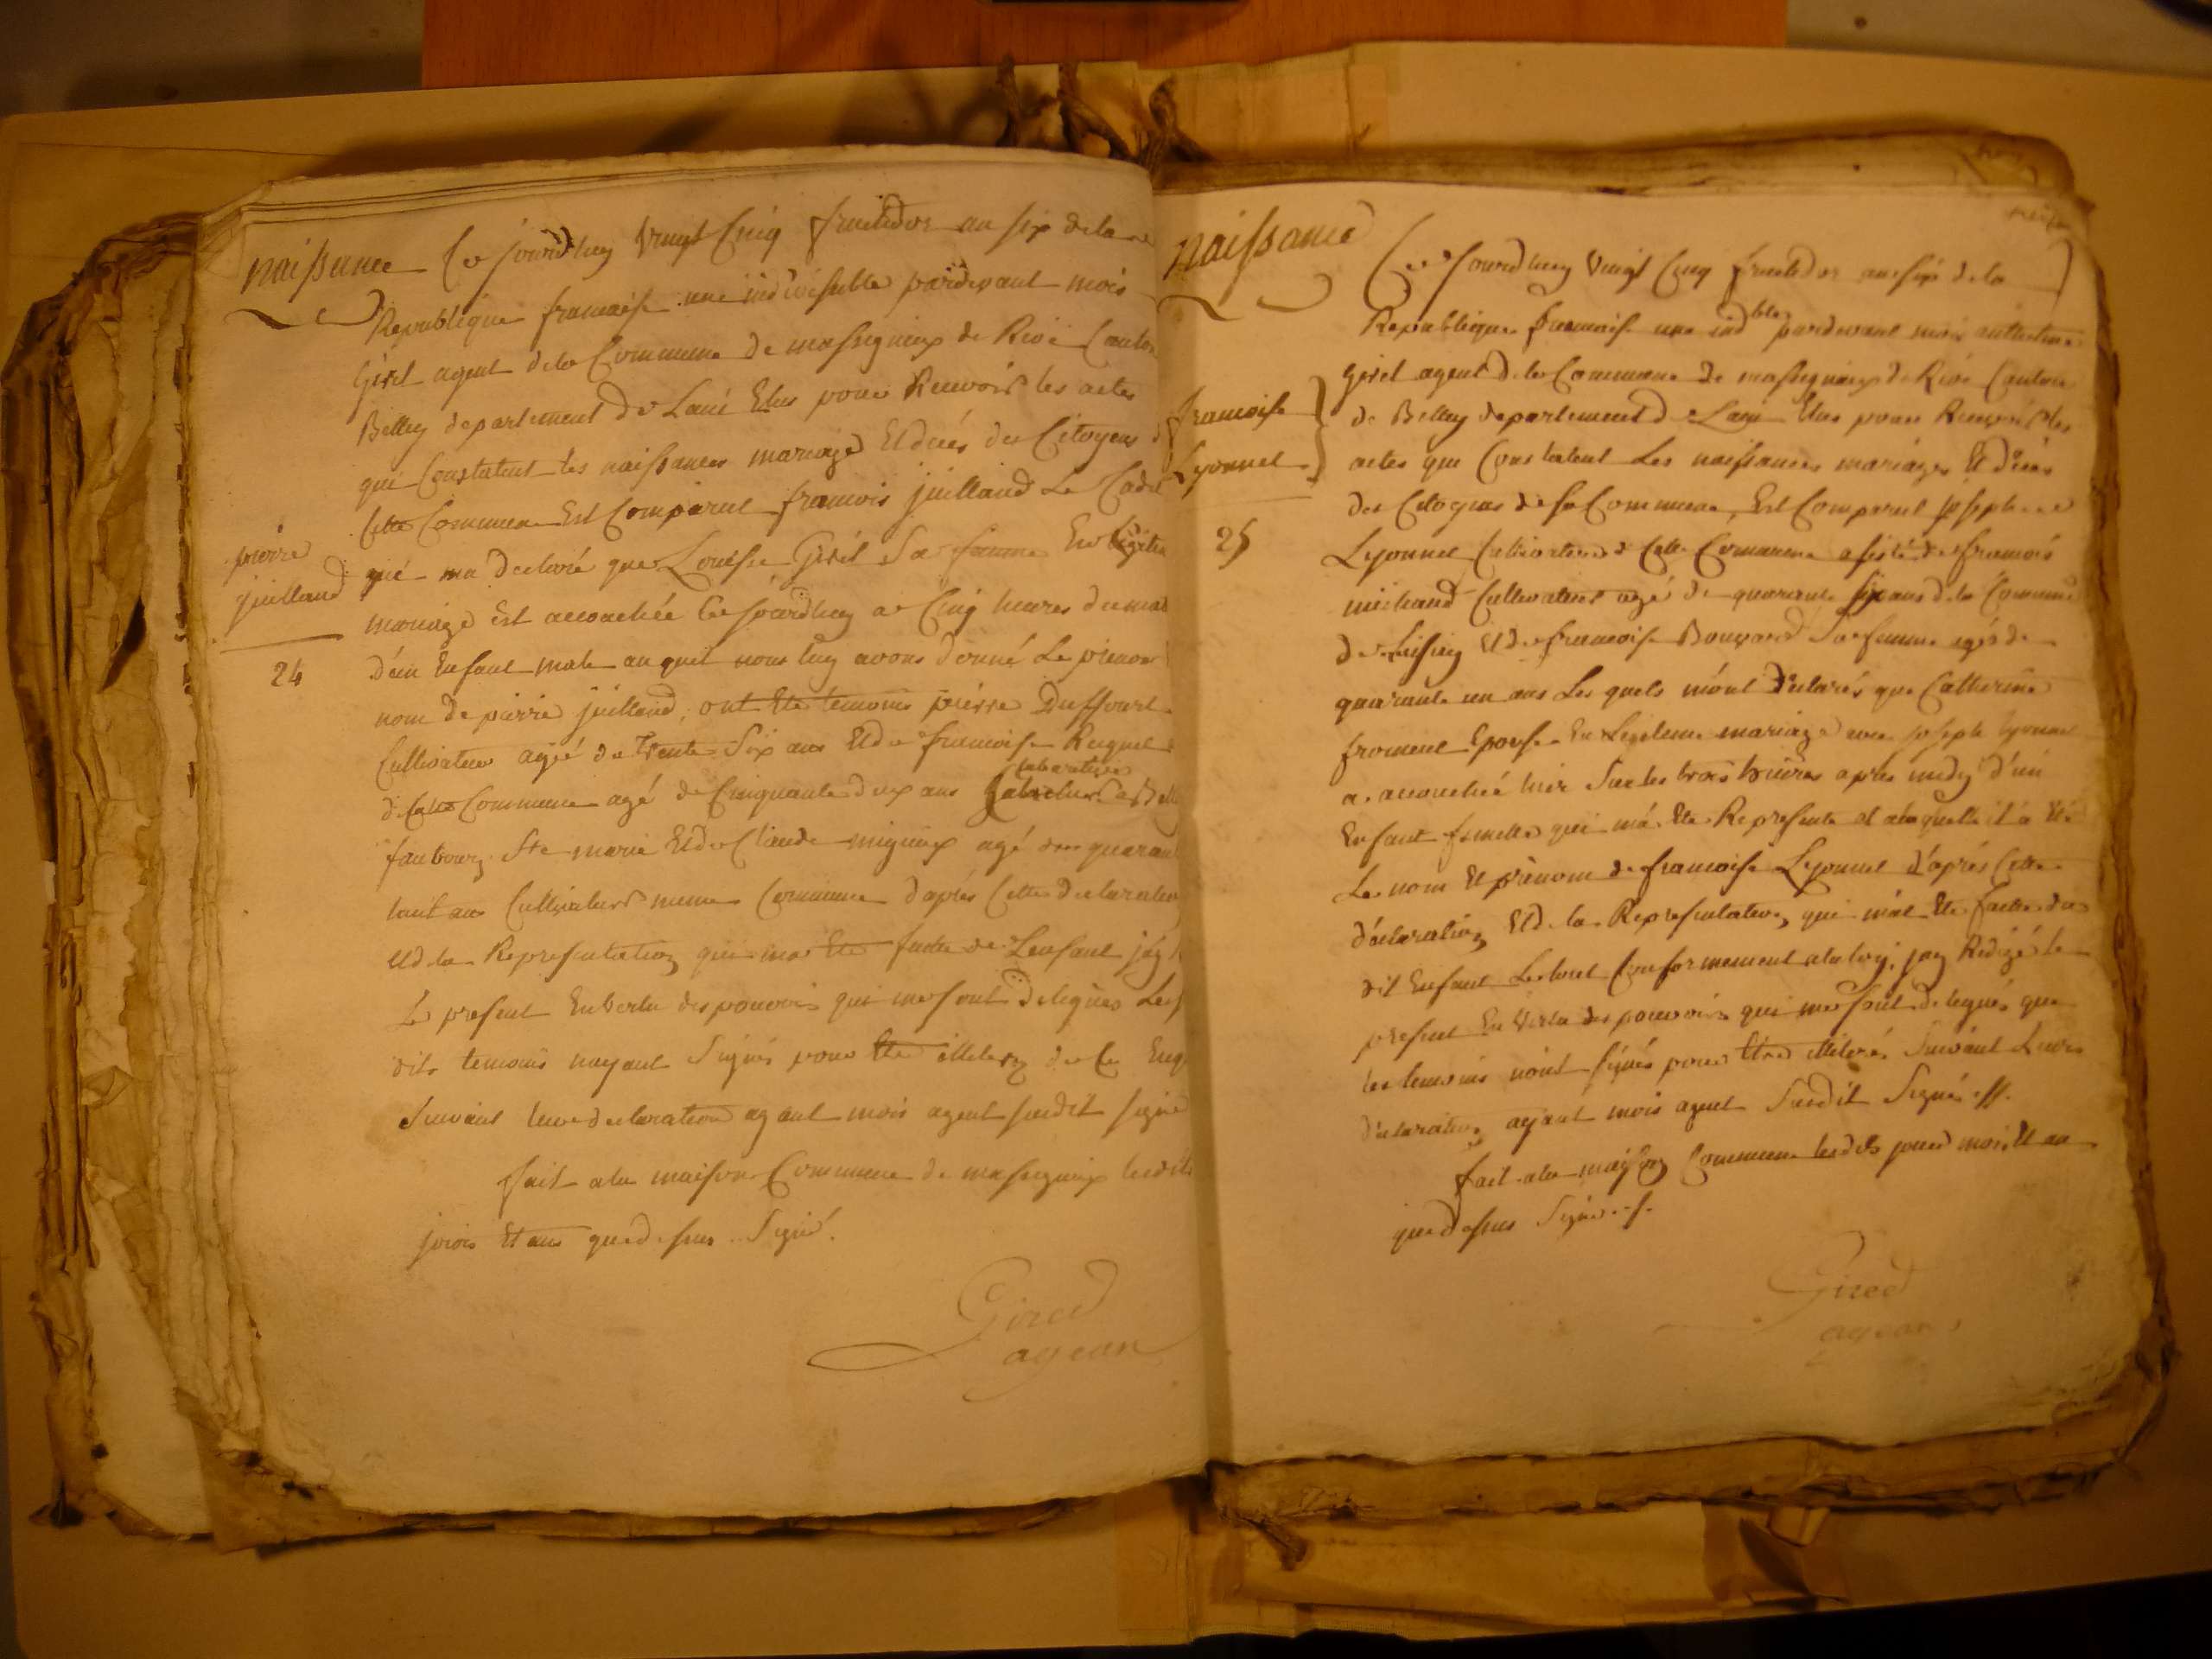 naissance Ce jourdhuy vingt Cinq fructidor an six dela
Republique francaise une indivisible pardevant mois
Girel agent dela Commune de massignieux de Rive Canton
Belley departement de Lain Elus pour Recevoir les actes
qui Constatent les naissances mariage Et decés des Citoyens d
Cette Commune Est Comparut francois juilland Le Cadet
pierre
juilland
24
qui ma declaré que Louise Girel Sa femme En legitim
mariage Est accouchée Ce jourdhuy a Cinq heures du mat
d'un Enfant male auquel nous luy avons donné Le prenom
nom de pierre juilland, ont Ete temoins pierre Duffourt
Cultivateur agé de trente Six ans Et de francoise
de Cette Commune agé de Cinquante deux ans
faubourg Ste marie Et de Claude migniex agé de quarant
huit ans Cultivateur meme Commune d'aprés Cette declaration
Et de la Representation qui ma Ete faitte de Lenfant jay
Le present En vertu des pouvoirs qui me sont delegués Les
dits temoins nayant Signés pour Etre illiteré de Ce Enq
Suivant leur declaration ayant mois agent susdit signé
fait ala maison Commune de massignieux lesdits
jours Et ans que dessus Signé.
Girel
agean
naissance
Ce jourdhuy vingt Cinq fructidor an six de la
Republique francaise une indble pardevant mois anthelme
Girel agent dela Commune de massignieux de Rive Canton
francoise
Lyonnet
25
de Belley departement de Lain Elus pour Recevoir les
actes qui Constatent Les naissances mariages Et décés
des Citoyens de sa Commune, Est Comparut joseph
Lyonnet Cultivateur de Cette Commune assisté de francois
michaud Cultivateur agé de quarante six ans dela Commune
de Et de francoise Bouvard Sa femme agés de
quarante un ans Les quels m'ont declarés que Catherine
froment Epouse En Legitime mariage avec joseph lyonnet
a accouchée hier Sur les trois heures aprés midy d'un
Enfant femelle qui m'a Ete Representé et alaquelle il a Eté
Le nom Et prénom de francoise Lyonnet d'aprés Cette
déclaration Et de la Representation qui m'at Ete faitte du
dit Enfant Le tout Conformement ala loy, jay Redigé le
present En vertu des pouvoirs qui me sont delegués que
les temoins n'ont signés pour Etre illiterés Suivant Leurs
déclaration ayant mois agent Susdit Signé
fait ala maison Commune lesdits jours mois Et an
que dessus Signé
Girel
agean